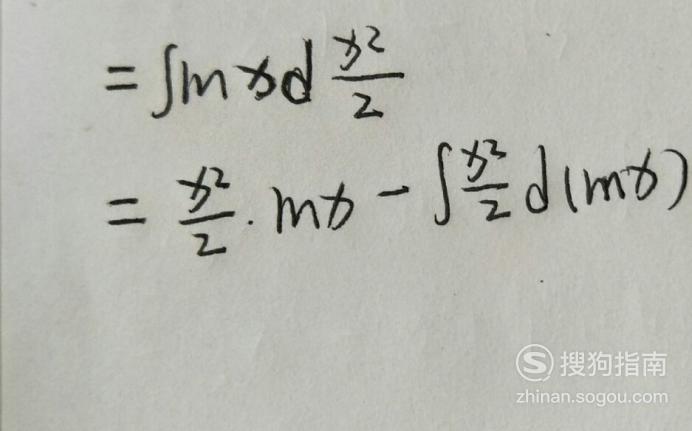 = ∫lnx d x²/2
= x²/2 · lnx - ∫ x²/2 d(lnx)
S 搜狗指南
zhinan.sogou.com